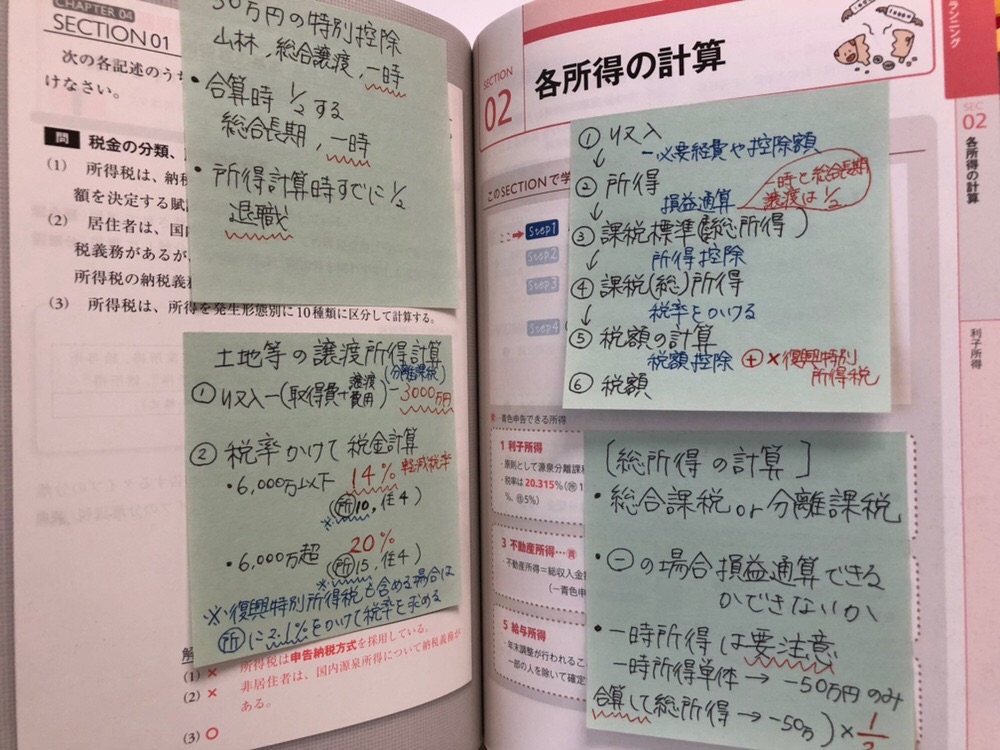 CHAPTER 04
SECTION 01
次の各記述のうち
けなさい。
問 税金の分類、
(1) 所得税は、納税
額を決定する賦
(2) 居住者は、国内
税義務があるが、
所得税の納税義務
(3) 所得税は、所得を発生形態別に10種類に区分して計算する。
50万円の特別控除
山林,総合譲渡,一時
・合算時 1/2 する
総合長期,一時
・所得計算時すでに1/2
退職
土地等の譲渡所得計算
(分離課税)
① 収入−(取得費+譲渡費用)−3000万円
② 税率かけて税金計算
・6,000万以下 14% 軽減税率
※所10,住4)
・6,000万超 20%
※(所15,住4)
※復興特別所得税も含める場合は
所に
をかけて税率を求める
(1) × 所得税は申告納税方式を採用している。
(2) × 非居住者は、国内源泉所得について納税義務が
ある。
(3) ○
ランニング
SECTION
02
各所得の計算
SEC
02
各所得の計算
利子所得
このSECTIONで学
ここ→ Step1
Step2
Step3
Step4
① 収入
↓ −必要経費や控除額
② 所得
↓ 損益通算
一時と総合長期
譲渡は1/2
③ 課税標準(総所得)
↓ 所得控除
④ 課税(総)所得
↓ 税率をかける
⑤ 税額の計算
税額控除 ⊕×復興特別
所得税
⑥ 税額
…青色申告できる所得
1 利子所得
・原則として源泉分離課
・税率は20.315%(所1
%、住5%)
3 不動産所得…
・不動産所得=総収入金
(−青色申
5 給与所得
・年末調整が行われるこ
一部の人を除いて確定
[総所得の計算]
・総合課税or分離課税
・㊀の場合損益通算できる
かできないか
・一時所得は要注意
一時所得単体→−50万円のみ
合算して総所得→−50万)×1/2